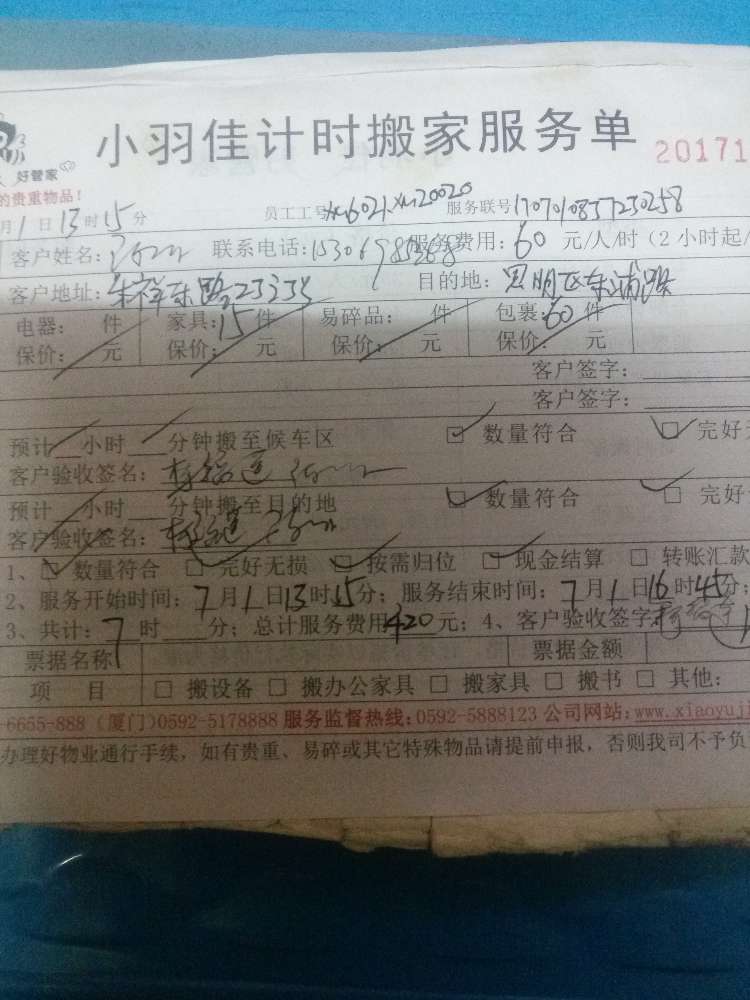 小羽佳计时搬家服务单 20171
好管家
的贵重物品!
月1日13时15分 员工工号 xm6021.xm20020 服务联号1707010857230258
客户姓名: 联系电话: 服务费用:60元/人/时(2小时起/
客户地址: 目的地:思明区东浦路
电器: 件 家具:15件 易碎品: 件 包裹:60件
保价: 元 保价: 元 保价: 元 保价: 元
客户签字:
客户签字:
预计 小时 分钟搬至候车区 □ 数量符合 □ 完好无
客户验收签名:
预计 小时 分钟搬至目的地 □ 数量符合 □ 完好
客户验收签名:
1、□ 数量符合 □ 完好无损 □ 按需归位 □ 现金结算 □ 转账汇款
2、服务开始时间:7月1日13时15分;服务结束时间:7月1日16时45分;
3、共计:7时 分;总计服务费用420元;4、客户验收签字
票据名称 票据金额
项 目 □ 搬设备 □ 搬办公家具 □ 搬家具 □ 搬书 □ 其他:
-6655-888(厦门)0592-5178888 服务监督热线:0592-5888123 公司网站:www.xiaoyuji
办理好物业通行手续,如有贵重、易碎或其它特殊物品请提前申报,否则我司不予负